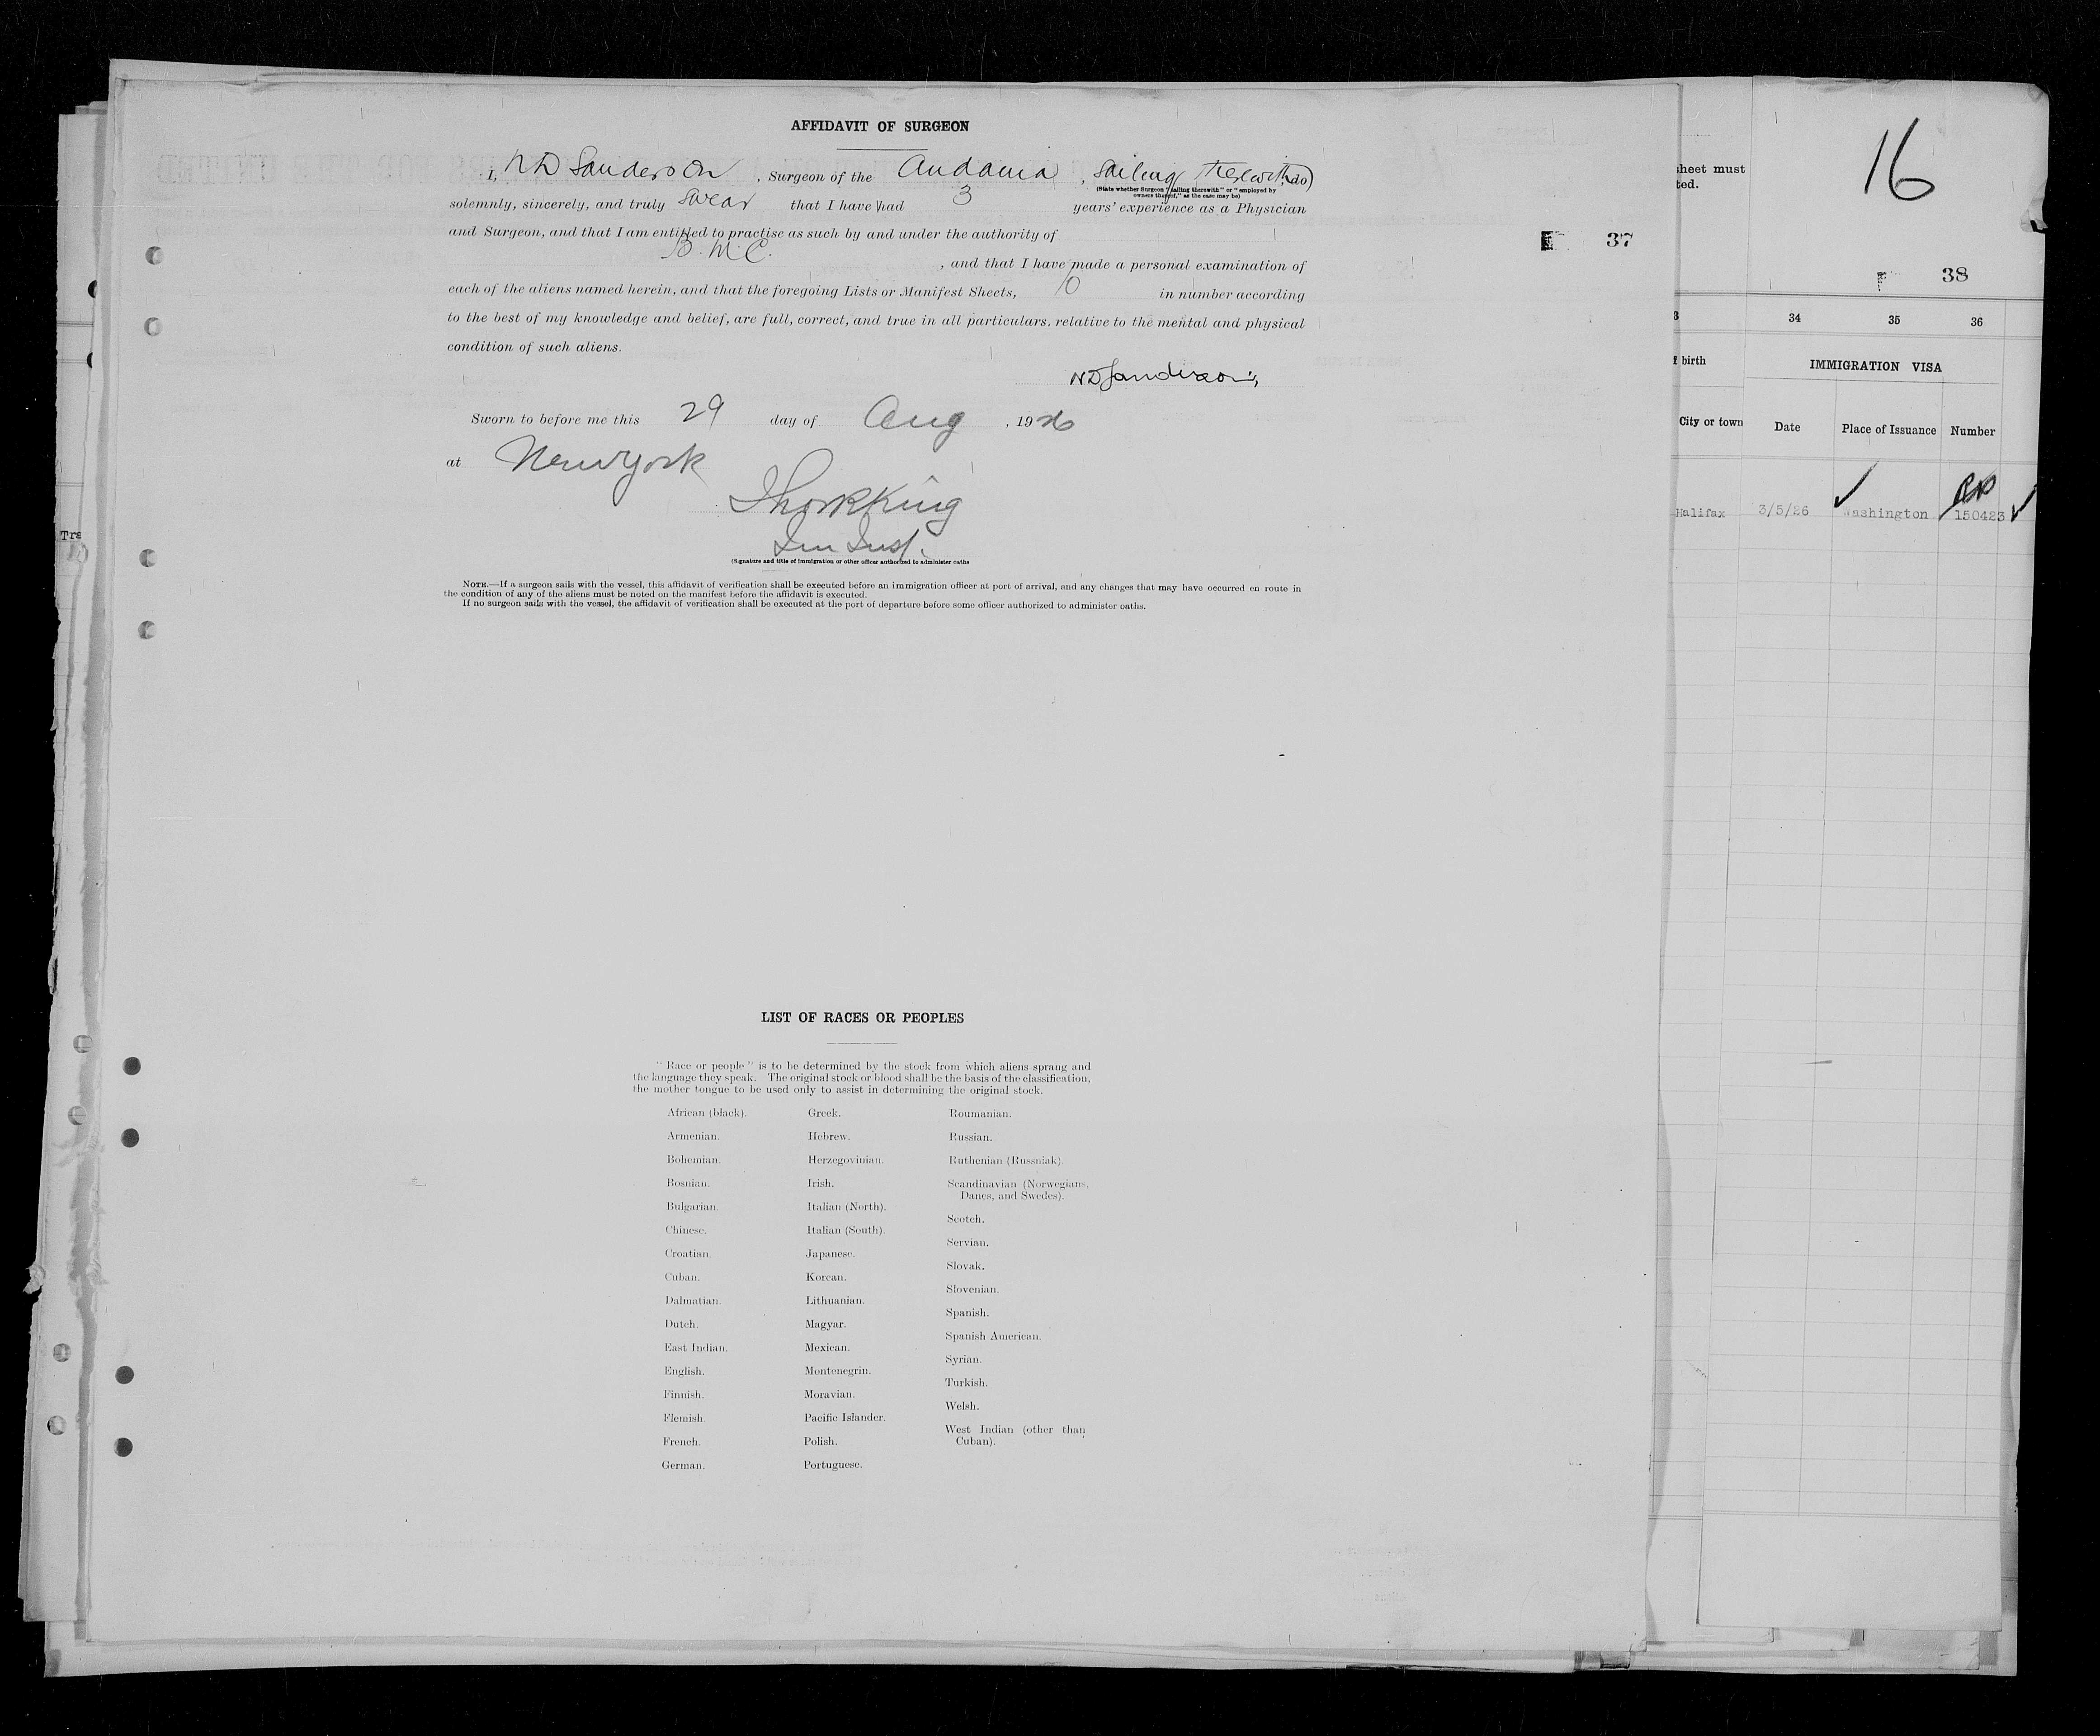 AFFIDAVIT OF SURGEON
I, N D Sanderson, Surgeon of the Andania, Sailing therewith, do
(State whether Surgeon "sailing therewith" or "employed by
owners thereof," as the case may be)
solemnly, sincerely, and truly swear that I have had 3 years' experience as a Physician
and Surgeon, and that I am entitled to practise as such by and under the authority of
B. M. C. , and that I have made a personal examination of
each of the aliens named herein, and that the foregoing Lists or Manifest Sheets, 10 in number according
to the best of my knowledge and belief, are full, correct, and true in all particulars, relative to the mental and physical
condition of such aliens.
N D Sanderson
Sworn to before me this 29 day of Aug, 1926
at New York
King
Im Insp.
(Signature and title of immigration or other officer authorized to administer oaths
NOTE.—If a surgeon sails with the vessel, this affidavit of verification shall be executed before an immigration officer at port of arrival, and any changes that may have occurred en route in
the condition of any of the aliens must be noted on the manifest before the affidavit is executed.
If no surgeon sails with the vessel, the affidavit of verification shall be executed at the port of departure before some officer authorized to administer oaths.
37
LIST OF RACES OR PEOPLES
"Race or people" is to be determined by the stock from which aliens sprang and
the language they speak. The original stock or blood shall be the basis of the classification,
the mother tongue to be used only to assist in determining the original stock.
African (black).
Armenian.
Bohemian.
Bosnian.
Bulgarian.
Chinese.
Croatian.
Cuban.
Dalmatian.
Dutch.
East Indian.
English.
Finnish.
Flemish.
French.
German.
Greek.
Hebrew.
Herzegovinian.
Irish.
Italian (North).
Italian (South).
Japanese.
Korean.
Lithuanian.
Magyar.
Mexican.
Montenegrin.
Moravian.
Pacific Islander.
Polish.
Portuguese.
Roumanian.
Russian.
Ruthenian (Russniak).
Scandinavian (Norwegians,
Danes, and Swedes).
Scotch.
Servian.
Slovak.
Slovenian.
Spanish.
Spanish American.
Syrian.
Turkish.
Welsh.
West Indian (other than
Cuban).
Tra
sheet must
ted.
16
38
3 34 35 36
f birth IMMIGRATION VISA
City or town Date Place of Issuance Number
Halifax 3/5/26 Washington 150423